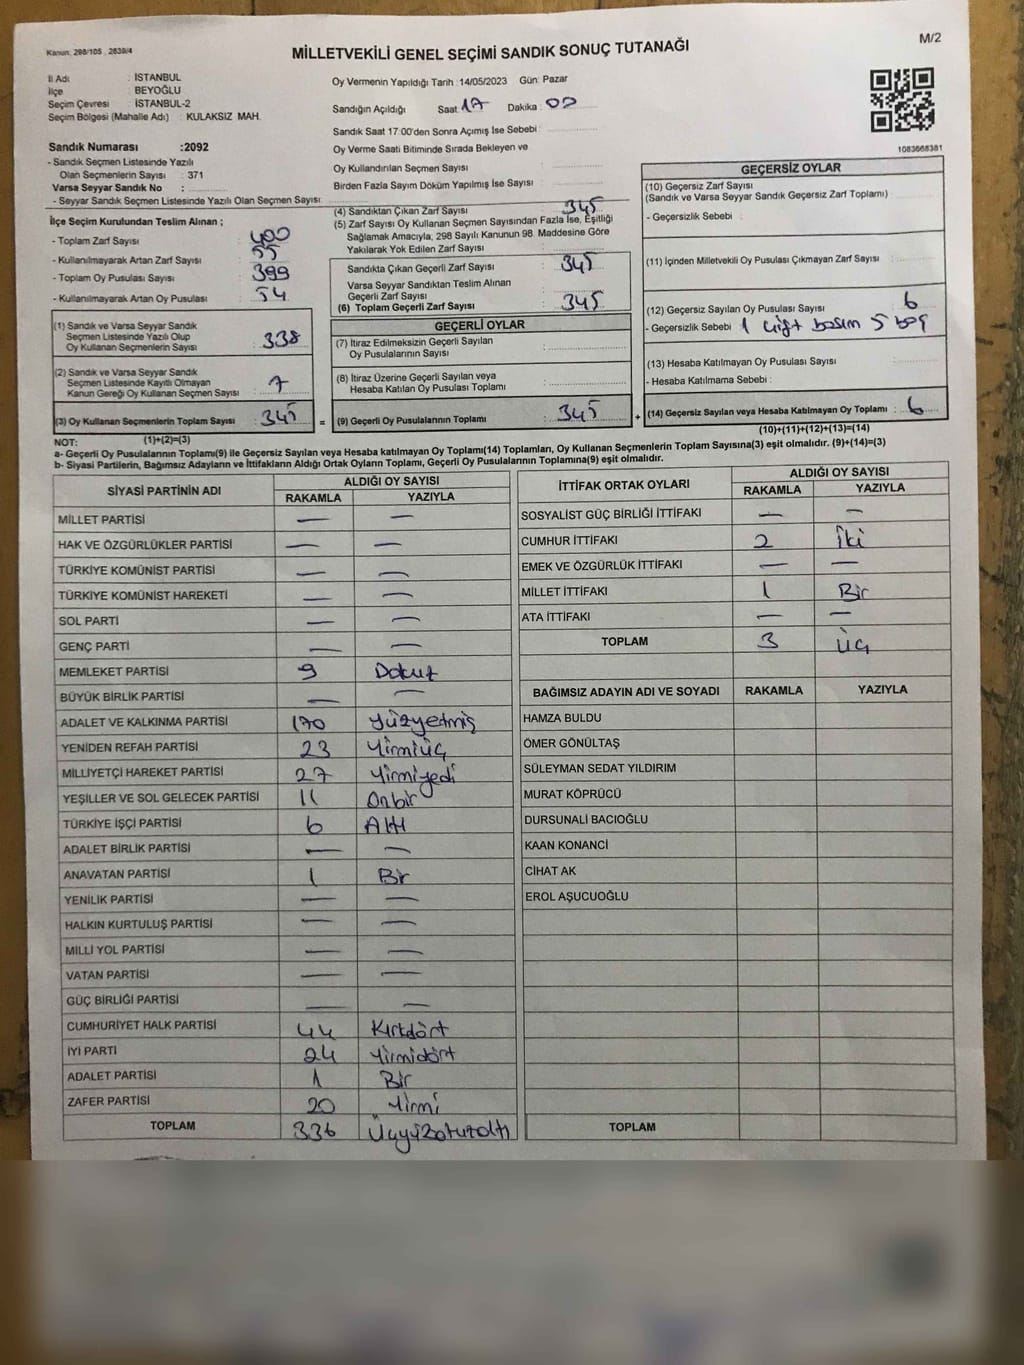 Kanun: 298/105 , 2839/4
MİLLETVEKİLİ GENEL SEÇİMİ SANDIK SONUÇ TUTANAĞI
M/2
İl Adı : İSTANBUL
İlçe BEYOĞLU
Seçim Çevresi : İSTANBUL-2
Seçim Bölgesi (Mahalle Adı) : KULAKSIZ MAH.
Sandık Numarası :2092
- Sandık Seçmen Listesinde Yazılı
Olan Seçmenlerin Sayısı : 371
Varsa Seyyar Sandık No :
- Seyyar Sandık Seçmen Listesinde Yazılı Olan Seçmen Sayısı
Oy Vermenin Yapıldığı Tarih :14/05/2023 Gün: Pazar
Sandığın Açıldığı Saat: 17 Dakika: 00
Sandık Saat 17:00'den Sonra Açımış İse Sebebi :
Oy Verme Saati Bitiminde Sırada Bekleyen ve
Oy Kullandırılan Seçmen Sayısı :
Birden Fazla Sayım Döküm Yapılmış İse Sayısı :
1083668381
İlçe Seçim Kurulundan Teslim Alınan ;
- Toplam Zarf Sayısı : 400
- Kullanılmayarak Artan Zarf Sayısı : 55
- Toplam Oy Pusulası Sayısı : 399
- Kullanılmayarak Artan Oy Pusulası : 54
(1) Sandık ve Varsa Seyyar Sandık
Seçmen Listesinde Yazılı Olup
Oy Kullanan Seçmenlerin Sayısı : 338
(2) Sandık ve Varsa Seyyar Sandık
Seçmen Listesinde Kayıtlı Olmayan
Kanun Gereği Oy Kullanan Seçmen Sayısı : 7
(3) Oy Kullanan Seçmenlerin Toplam Sayısı : 345
(1)+(2)=(3)
(4) Sandıktan Çıkan Zarf Sayısı : 345
(5) Zarf Sayısı Oy Kullanan Seçmen Sayısından Fazla İse, Eşitliği
Sağlamak Amacıyla, 298 Sayılı Kanunun 98. Maddesine Göre
Yakılarak Yok Edilen Zarf Sayısı :
Sandıkta Çıkan Geçerli Zarf Sayısı : 345
Varsa Seyyar Sandıktan Teslim Alınan
Geçerli Zarf Sayısı :
(6) Toplam Geçerli Zarf Sayısı : 345
GEÇERLİ OYLAR
(7) İtiraz Edilmeksizin Geçerli Sayılan
Oy Pusulalarının Sayısı :
(8) İtiraz Üzerine Geçerli Sayılan veya
Hesaba Katılan Oy Pusulası Toplamı :
= (9) Geçerli Oy Pusulalarının Toplamı : 345
GEÇERSİZ OYLAR
(10) Geçersiz Zarf Sayısı
(Sandık ve Varsa Seyyar Sandık Geçersiz Zarf Toplamı) :
- Geçersizlik Sebebi :
(11) İçinden Milletvekili Oy Pusulası Çıkmayan Zarf Sayısı :
(12) Geçersiz Sayılan Oy Pusulası Sayısı : 6
- Geçersizlik Sebebi : 1 çift basım 5 boş
(13) Hesaba Katılmayan Oy Pusulası Sayısı :
- Hesaba Katılmama Sebebi :
+ (14) Geçersiz Sayılan veya Hesaba Katılmayan Oy Toplamı : 6
(10)+(11)+(12)+(13)=(14)
NOT:
a- Geçerli Oy Pusulalarının Toplamı(9) ile Geçersiz Sayılan veya Hesaba katılmayan Oy Toplamı(14) Toplamları, Oy Kullanan Seçmenlerin Toplam Sayısına(3) eşit olmalıdır. (9)+(14)=(3)
b- Siyasi Partilerin, Bağımsız Adayların ve İttifakların Aldığı Ortak Oyların Toplamı, Geçerli Oy Pusulalarının Toplamına(9) eşit olmalıdır.
SİYASİ PARTİNİN ADI ALDIĞI OY SAYISI
RAKAMLA YAZIYLA
MİLLET PARTİSİ — —
HAK VE ÖZGÜRLÜKLER PARTİSİ — —
TÜRKİYE KOMÜNİST PARTİSİ — —
TÜRKİYE KOMÜNİST HAREKETİ — —
SOL PARTİ — —
GENÇ PARTİ — —
MEMLEKET PARTİSİ 9 Dokuz
BÜYÜK BİRLİK PARTİSİ — —
ADALET VE KALKINMA PARTİSİ 170 Yüzyetmiş
YENİDEN REFAH PARTİSİ 23 Yirmiüç
MİLLİYETÇİ HAREKET PARTİSİ 27 Yirmiyedi
YEŞİLLER VE SOL GELECEK PARTİSİ 11 Onbir
TÜRKİYE İŞÇİ PARTİSİ 6 Altı
ADALET BİRLİK PARTİSİ — —
ANAVATAN PARTİSİ 1 Bir
YENİLİK PARTİSİ — —
HALKIN KURTULUŞ PARTİSİ — —
MİLLİ YOL PARTİSİ — —
VATAN PARTİSİ — —
GÜÇ BİRLİĞİ PARTİSİ — —
CUMHURİYET HALK PARTİSİ 44 Kırkdört
İYİ PARTİ 24 Yirmidört
ADALET PARTİSİ 1 Bir
ZAFER PARTİSİ 20 Yirmi
TOPLAM 336 Üçyüzotuzaltı
İTTİFAK ORTAK OYLARI ALDIĞI OY SAYISI
RAKAMLA YAZIYLA
SOSYALİST GÜÇ BİRLİĞİ İTTİFAKI — —
CUMHUR İTTİFAKI 2 İki
EMEK VE ÖZGÜRLÜK İTTİFAKI — —
MİLLET İTTİFAKI 1 Bir
ATA İTTİFAKI — —
TOPLAM 3 Üç
BAĞIMSIZ ADAYIN ADI VE SOYADI RAKAMLA YAZIYLA
HAMZA BULDU
ÖMER GÖNÜLTAŞ
SÜLEYMAN SEDAT YILDIRIM
MURAT KÖPRÜCÜ
DURSUNALİ BACIOĞLU
KAAN KONANCİ
CİHAT AK
EROL AŞUCUOĞLU
TOPLAM